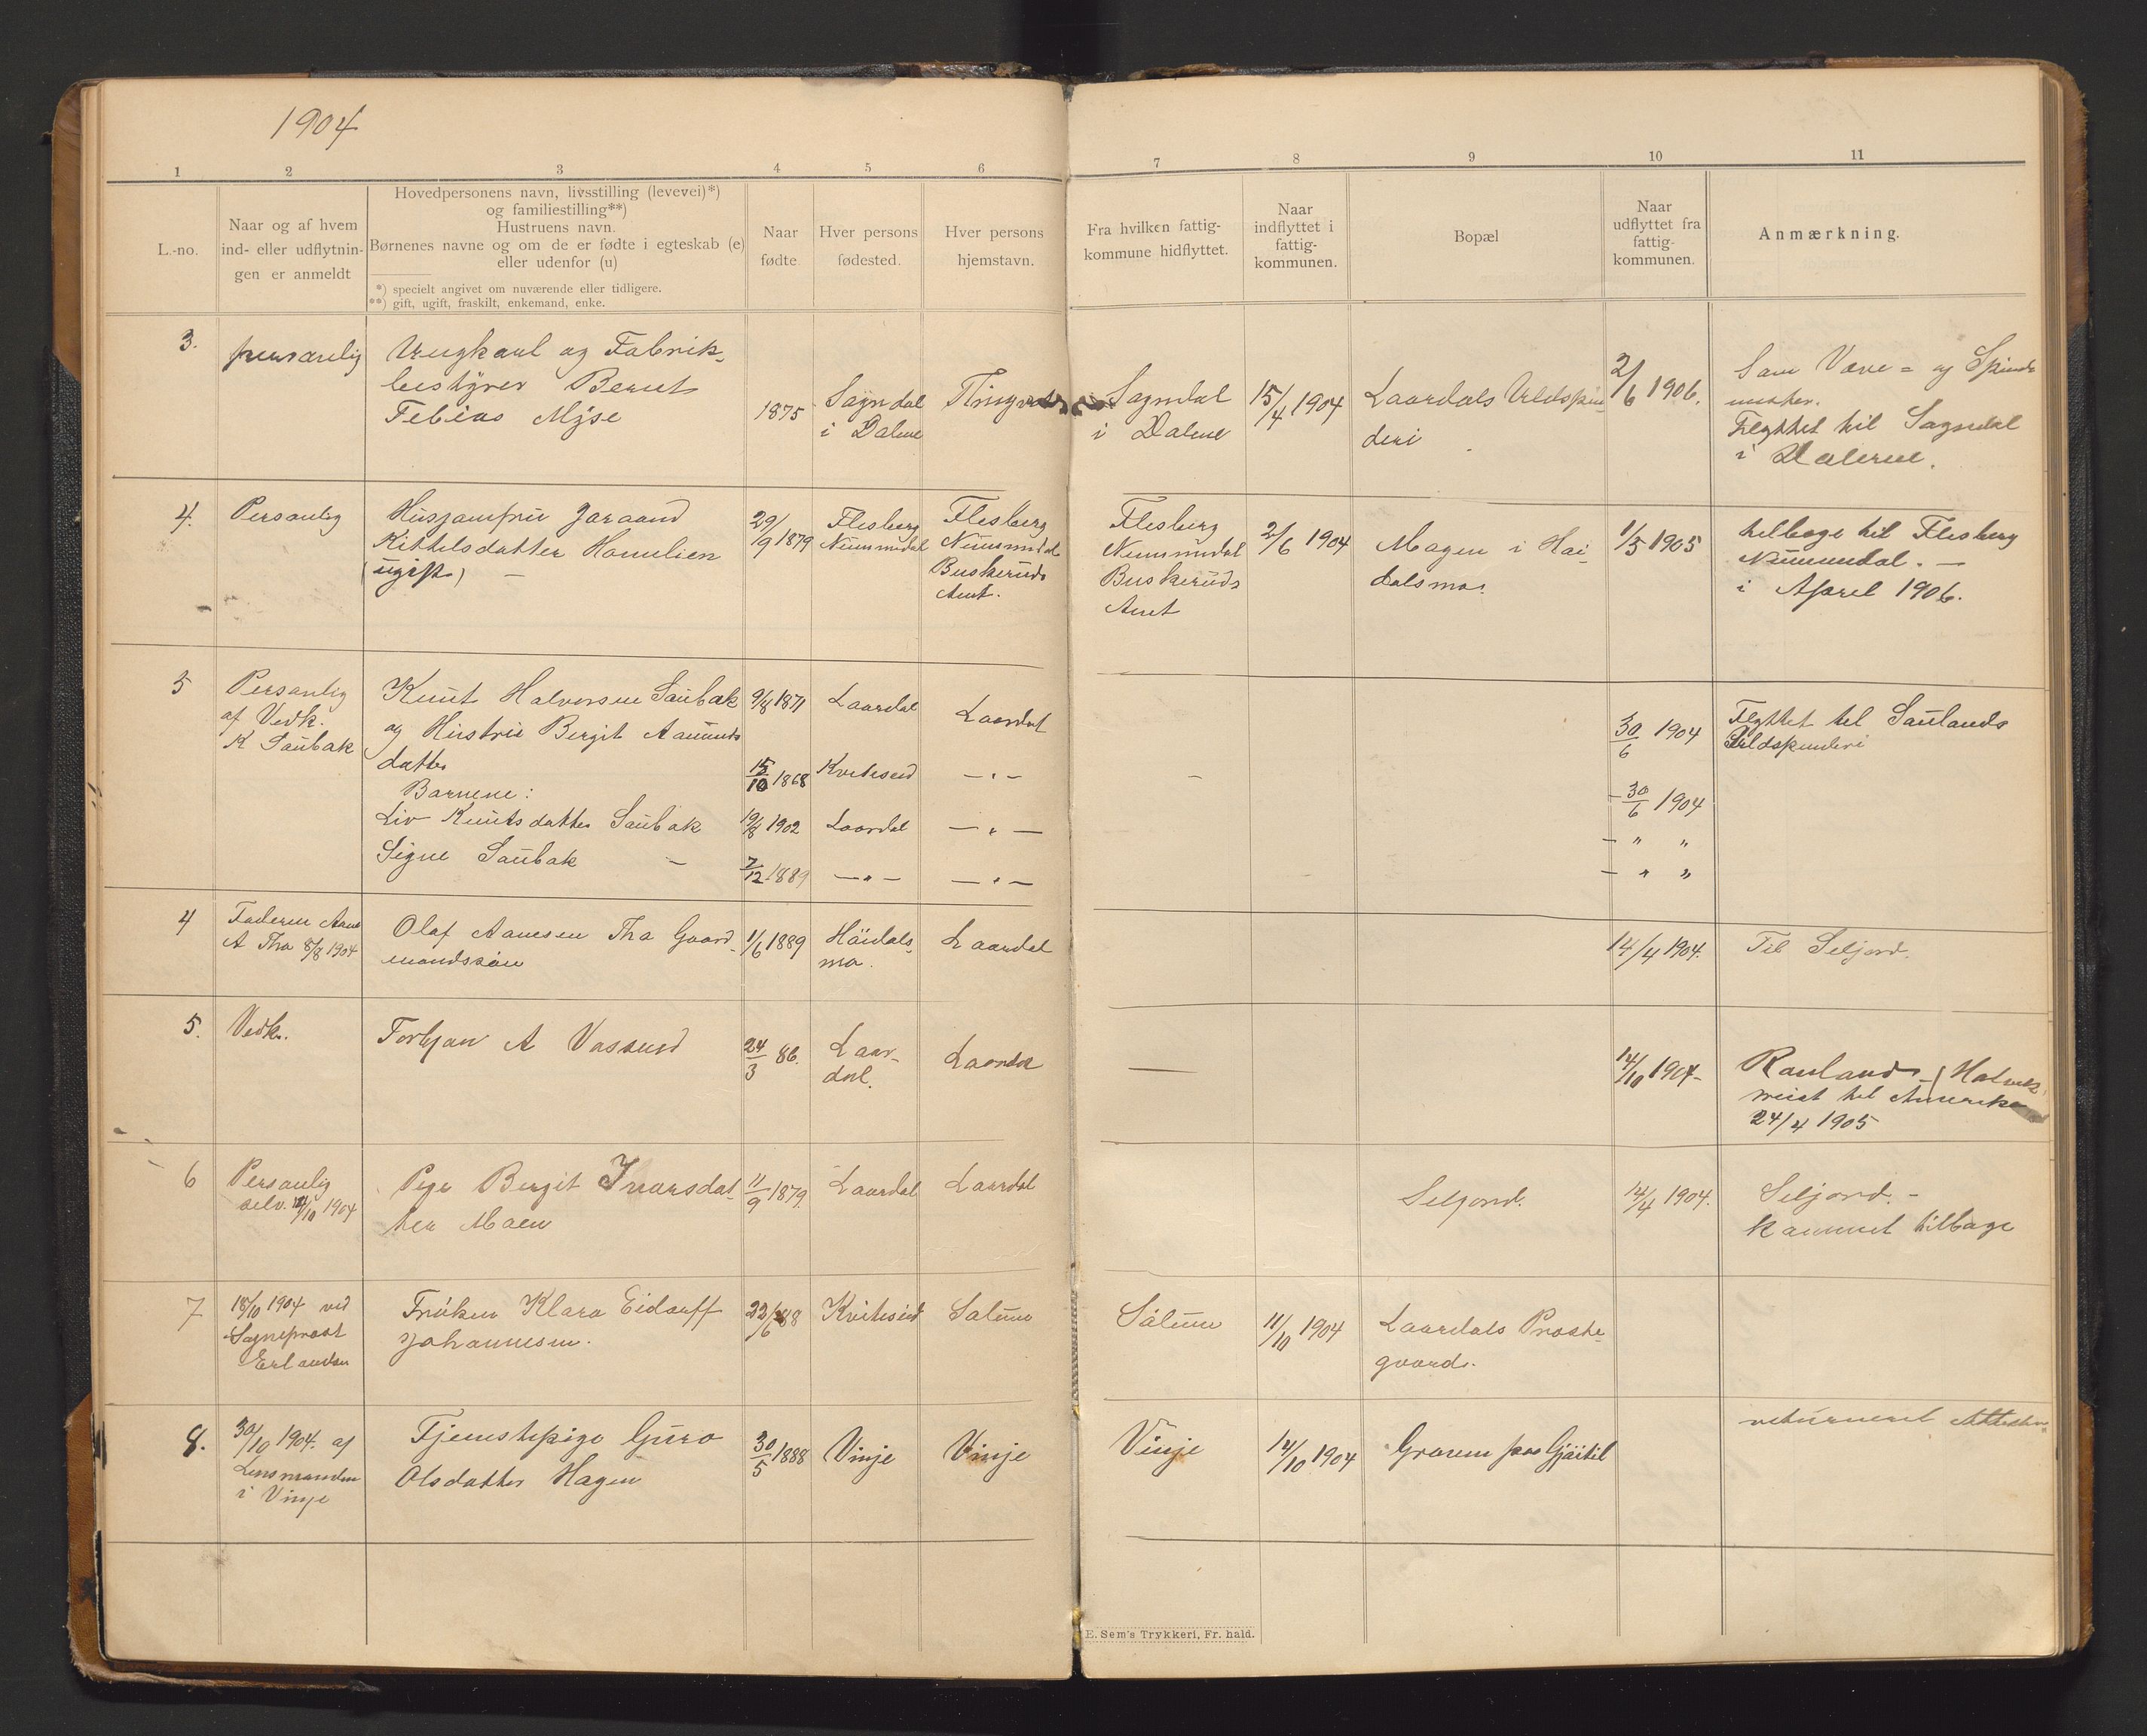 1904
1 2 3 4 5 6 7 8 9 10 11
L.-no.
Naar og af hvem
ind- eller udflytnin-
gen er anmeldt
Hovedpersonens navn, livsstilling (levevei)*)
og familiestilling**)
Hustruens navn.
Børnenes navne og om de er fødte i egteskab (e)
eller udenfor (u)
*) specielt angivet om nuværende eller tidligere.
**) gift, ugift, fraskilt, enkemand, enke.
Naar
fødte.
Hver persons
fødested.
Hver persons
hjemstavn.
Fra hvilken fattig-
kommune hidflyttet.
Naar
indflyttet i
fattig-
kommunen.
Bopæl
Naar
udflyttet fra
fattig-
kommunen.
Anmærkning.
3.
personlig
Ungkarl og Fabrik-
bestyrer Bernt
Tebias Myse
1875
Sogndal
i Dalene
Sogndal
i Dalene
15/4 1904
Laardals Uldspin
deri
2/6 1906.
Som Væve = og Spinde
mester.
Flyttet til Sogndal
i Dalerne.
4.
Personlig
Husjomfru Joraand
Kittelsdatter Homelien
(ugift) —
29/9 1879
Flesberg
Nummedal
Flesberg
Nummedal
Buskeruds
Amt.
Flesberg
Nummedal
Buskeruds
Amt
2/6 1904
Mogen i Høi
dalsmo.
1/5 1905
tilbage til Flesberg
Nummedal. —
i April 1906.
5
Personlig
af Vedk.
K Saubak
Knut Halvorsen Saubak
og Hustru Bergit Aamunds
datter
Barnene:
Liv Knutsdatter Saubak
Signe Saubak —
9/8 1871
15/10 1868
19/8 1902
7/12 1889
Laardal
Kviteseid
Laardal
—„—
Laardal
—„—
—„—
—„—
—
30/6 1904
- 30/6 1904
- „ „
- „ „
Flyttet til Saulands
Uldspinderi
4
Faderen Aane
A Tho 8/8 1904
Olaf Aanesen Tho Gaard-
mandssøn
1/6 1889
Høidals-
mo.
Laardal
14/4 1904.
Til Seljord.
5.
Vedk.
Torbjøn A Vassend
24/3 86.
Laar-
dal.
Laardal
—
14/10 1904-
Raulands
reist til Amerika
24/4 1905
6
Personlig
selv. 14/10 1904
Pige Bergit Ivarsdat-
ter Moen
11/9 1879.
Laardal
Laardal
Seljord.
14/4 1904.
Seljord. -
kommet tilbage
7
18/10 1904 ved
Sogneprest
Erlandsen
Frøken Klara Eidorff
Johannesen.
22/6 88
Kviteseid
Solum
Solum
11/10 1904
Laardals Preste-
gaard.
8.
30/10 1904. af
Lensmanden
i Vinje
Tjenestepige Guro
Olsdatter Hagen
30/5 1888
Vinje
Vinje
Vinje
14/10 1904
Groven paa Gjøitil
returneret
E. Sem's Trykkeri, Fr. hald.